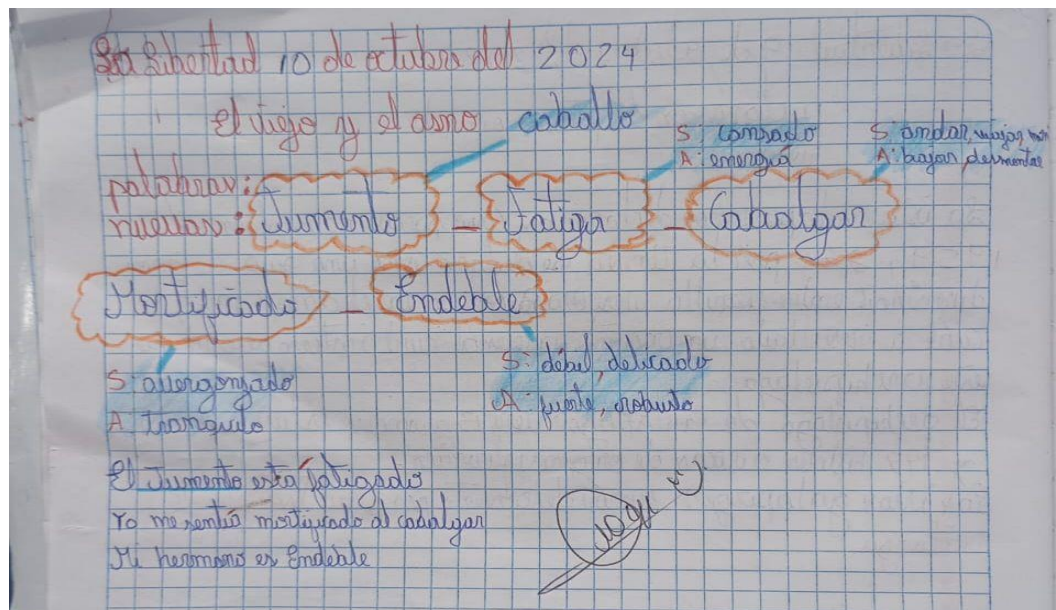 La Libertad 10 de octubre del 2024
El viejo y el asno caballo
S: cansado
A: energía
S: andar, viajar
A: bajar, desmontar
palabras:
nuevas: Jumento - Fatiga - Cabalgar
Mortificado - Endeble
S: avergonzado
A: tranquilo
S: débil, delicado
A: fuerte, robusto
El Jumento esta fatigado
Yo me sentia mortificado al cabalgar
Mi hermano es Endeble